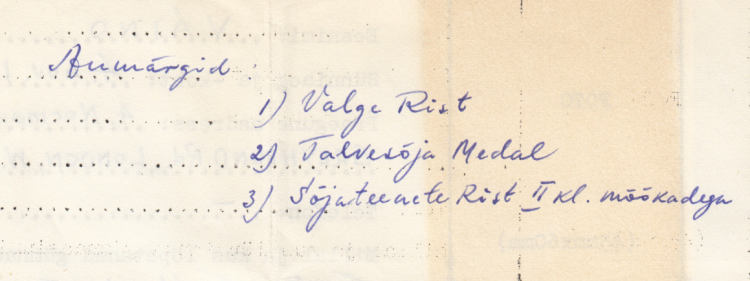 Aumärgid :
1) Valge Rist
2) Talvesõja Medal
3) Sõjateenete Rist II kl. mõõkadega